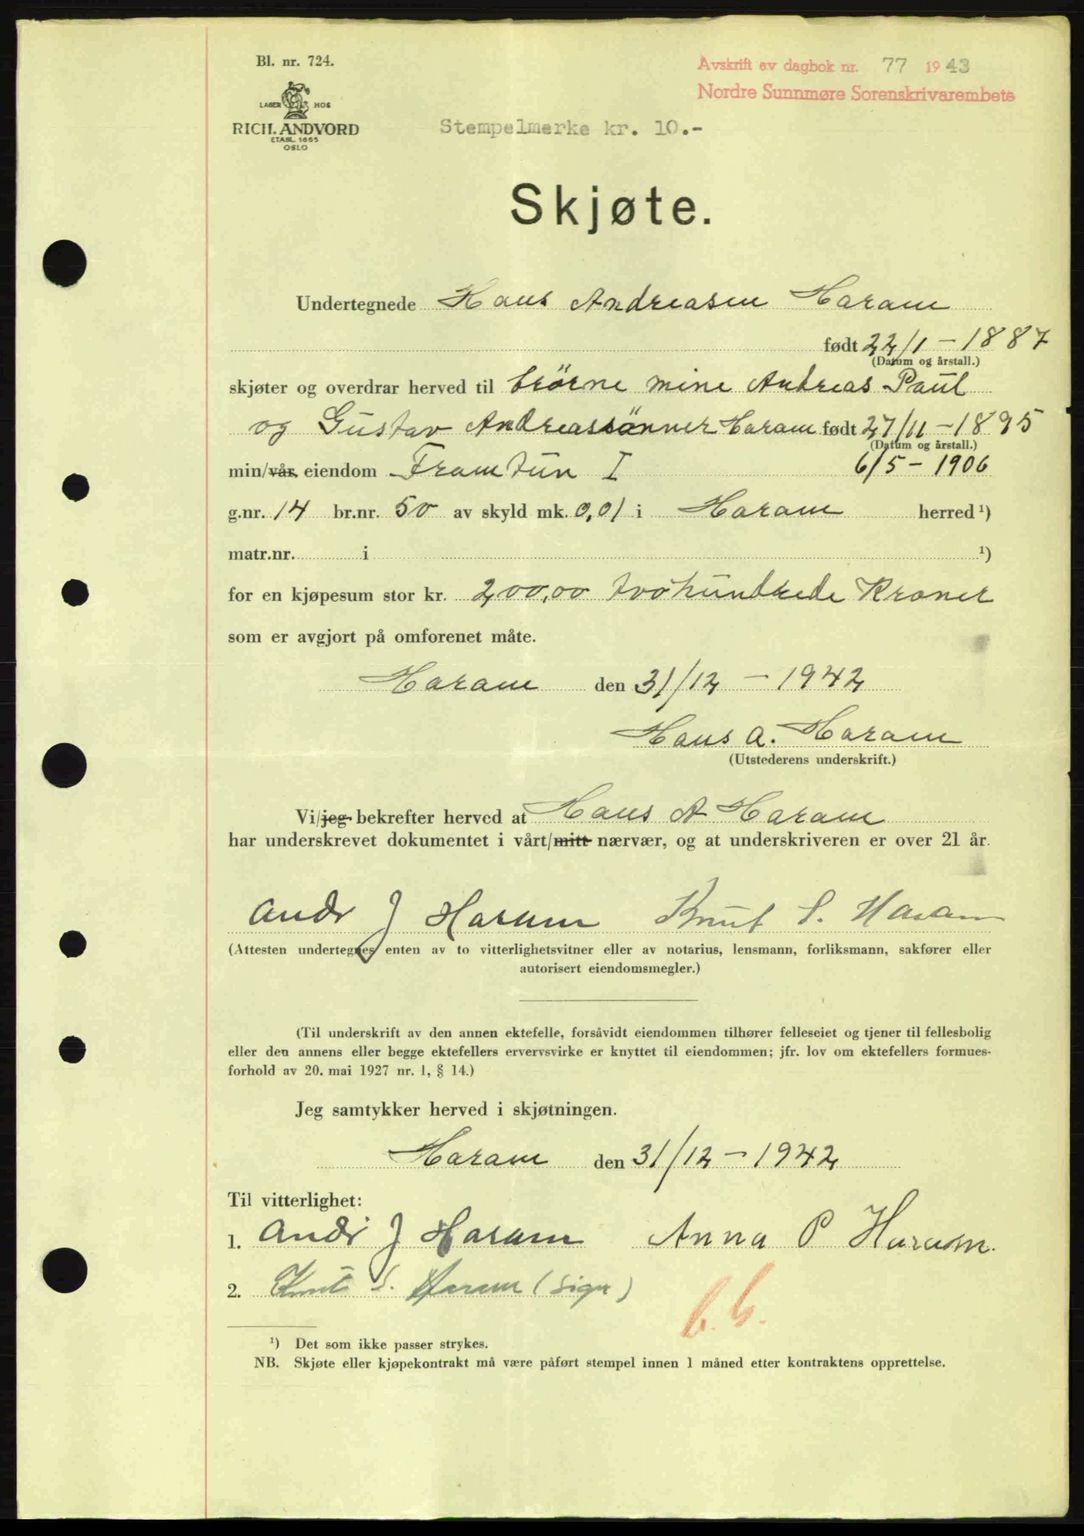 Bl. nr. 724.
LAGER HOS
RICH. ANDVORD
ETABL. 1865
OSLO
Avskrift av dagbok nr. 77 1943
Nordre Sunnmøre Sorenskrivarembete
Stempelmerke kr. 10.-
Skjøte.
Undertegnede Hans Andreasen Haram
født 22/1 - 1887
(Datum og årstall.)
skjøter og overdrar herved til brørne mine Andreas Paul
og Gustav Andreassønner Haram født 27/11 - 1895
(Datum og årstall.)
min/vår eiendom Framtun I 6/5 - 1906
g.nr. 14 br.nr. 50 av skyld mk. 0,01 i Haram herred ¹)
matr.nr. i ¹)
for en kjøpesum stor kr. 200,00 tvohundrede Kroner
som er avgjort på omforenet måte.
Haram den 31/12 - 1942
Hans A. Haram
(Utstederens underskrift.)
Vi/jeg bekrefter herved at Hans A Haram
har underskrevet dokumentet i vårt/mitt nærvær, og at underskriveren er over 21 år.
Andr J Haram Knut S. Haram
(Attesten undertegnes enten av to vitterlighetsvitner eller av notarius, lensmann, forliksmann, sakfører eller
autorisert eiendomsmegler.)
(Til underskrift av den annen ektefelle, forsåvidt eiendommen tilhører felleseiet og tjener til fellesbolig
eller den annens eller begge ektefellers ervervsvirke er knyttet til eiendommen; jfr. lov om ektefellers formues-
forhold av 20. mai 1927 nr. 1, § 14.)
Jeg samtykker herved i skjøtningen.
Haram den 31/12 - 1942
Til vitterlighet:
1. Andr J Haram Anna P Haram.
2. Knut S. Haram (sign)
¹) Det som ikke passer strykes.
NB. Skjøte eller kjøpekontrakt må være påført stempel innen 1 måned etter kontraktens opprettelse.